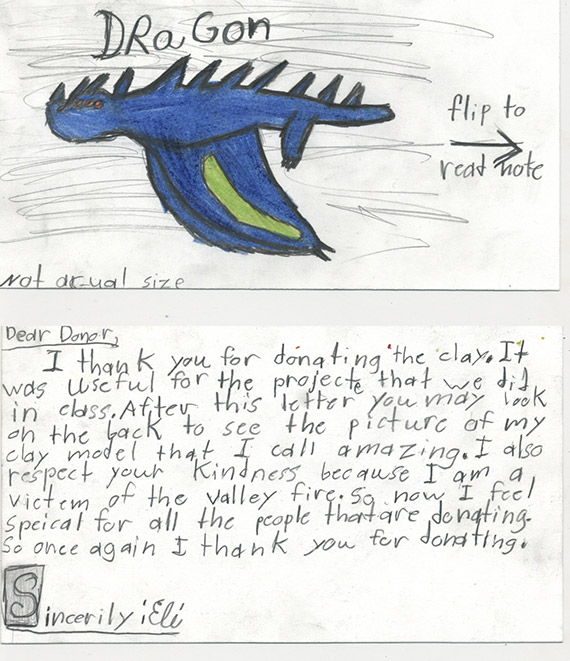 DRaGon
flip to
read note
Not acual size
Dear Donor,
I thank you for donating the clay. It
was useful for the projecte that we did
in class. After this letter you may look
on the back to see the picture of my
clay model that I call amazing. I also
respect your kindness because I am a
victem of the valley fire. So now I feel
speical for all the people that are donating.
So once again I thank you for donating.
Sincerily ; Eli